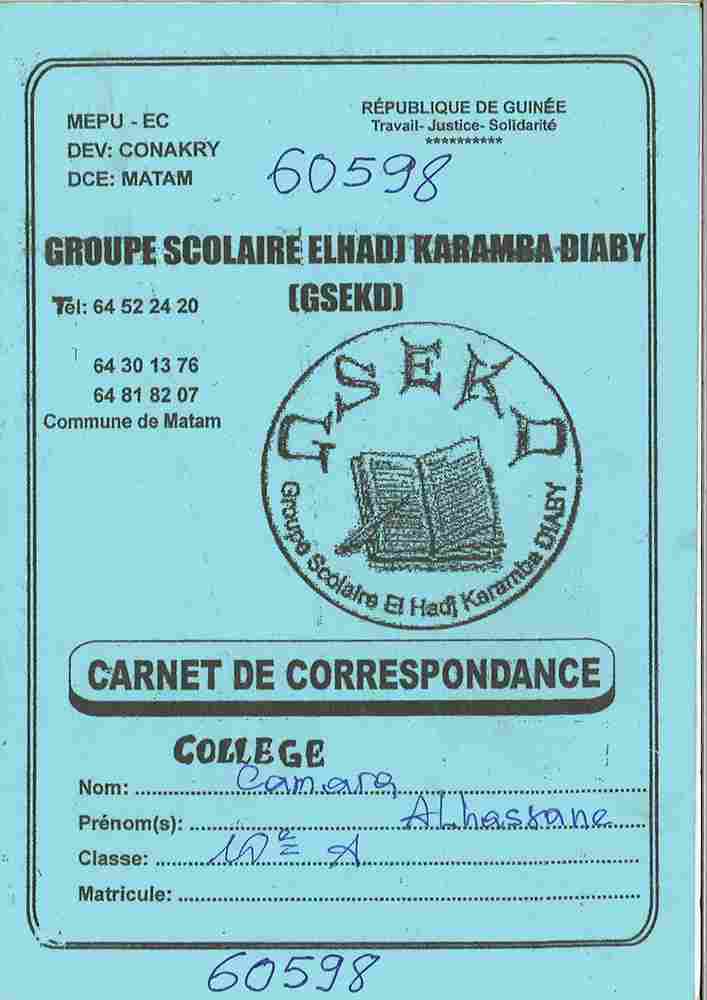 MEPU - EC
DEV: CONAKRY
DCE: MATAM
RÉPUBLIQUE DE GUINÉE
Travail- Justice- Solidarité
**********
60598
GROUPE SCOLAIRE ELHADJ KARAMBA DIABY
(GSEKD)
Tél: 64 52 24 20
64 30 13 76
64 81 82 07
Commune de Matam
GSEKD
Groupe Scolaire El Hadj Karamba DIABY
CARNET DE CORRESPONDANCE
COLLEGE
Nom: Camara
Prénom(s): ALhassane
Classe: 10e A
Matricule:
60598